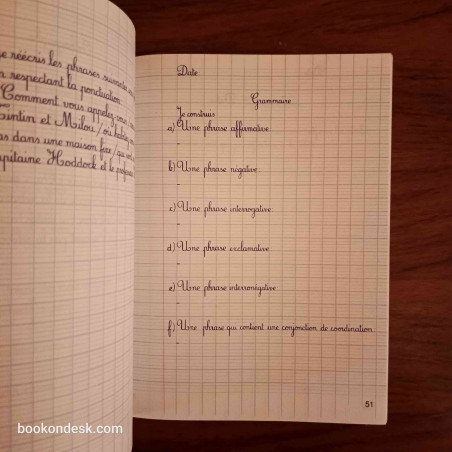 réécris les phrases suivantes
respectant la ponctuation
Comment vous appelez-vous
Tintin et Milou / où habitez
dans une maison
capitaine Haddock et le
Date
Grammaire
Je construis
a) Une phrase affirmative
-
b) Une phrase négative
-
c) Une phrase interrogative
-
d) Une phrase exclamative
-
e) Une phrase interronégative
-
f) Une phrase qui contient une conjonction de coordination
-
51
bookondesk.com